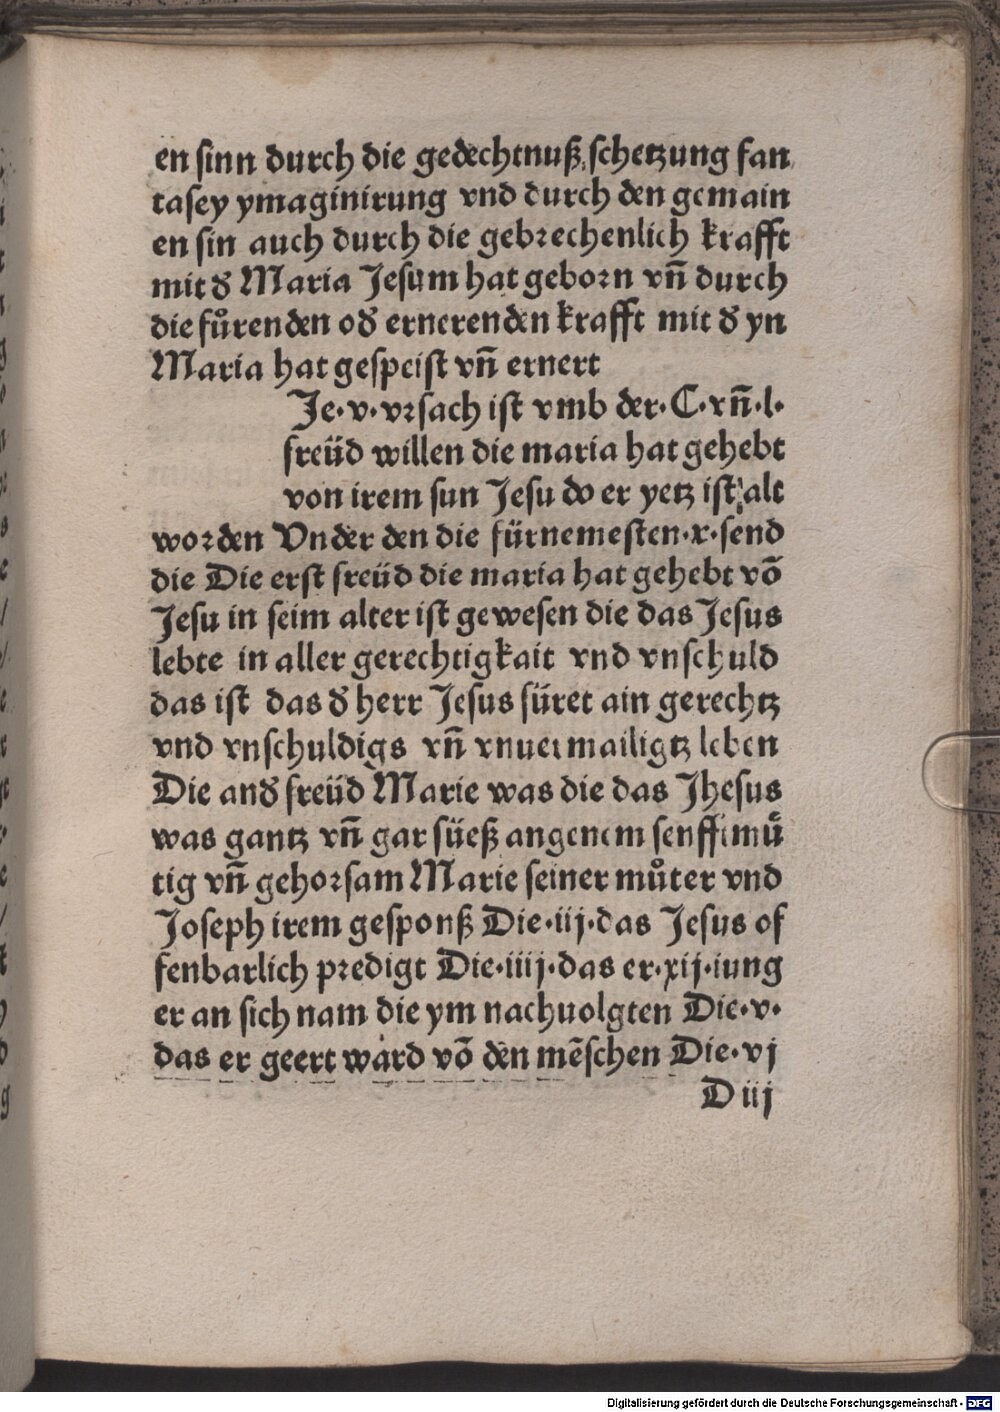 en sinn durch die gedechtnuß schetzung fan
tasey ymaginirung vnd durch den gemain
en sin auch durch die gebꝛechenlich krafft
mit d̕ Maria Jesum hat geboꝛn vn̄ durch
die fuͦrenden od̕ ernerenden krafft mit d̕ yn
Maria hat gespeist vn̄ ernert
Je·v·vꝛsach ist vmb der·C·vn̄·l·
freüd willen die maria hat gehebt
von irem sun Jesu do er yetz ist alt
woꝛden Vnder den die fürnemesten·x·send
die Die erst freüd die maria hat gehebt võ
Jesu in seim alter ist gewesen die das Jesus
lebte in aller gerechtigkait vnd vnschuld
das ist das d̕ herr Jesus füret ain gerechtz
vnd vnschuldigs vn̄ vnuermailigtz leben
Die and̕ freüd Marie was die das Jhesus
was gantz vn̄ gar süeß angenem senfftmuͤ
tig vn̄ gehoꝛsam Marie seiner muͦter vnd
Joseph irem gesponß Die·iij·das Jesus of
fenbarlich pꝛedigt Die·iiij·das er·xij·iung
er an sich nam die ym nachuolgten Die·v·
das er geert ward võ den mẽschen Die·vj
D iij
Digitalisierung gefördert durch die Deutsche Forschungsgemeinschaft - DFG